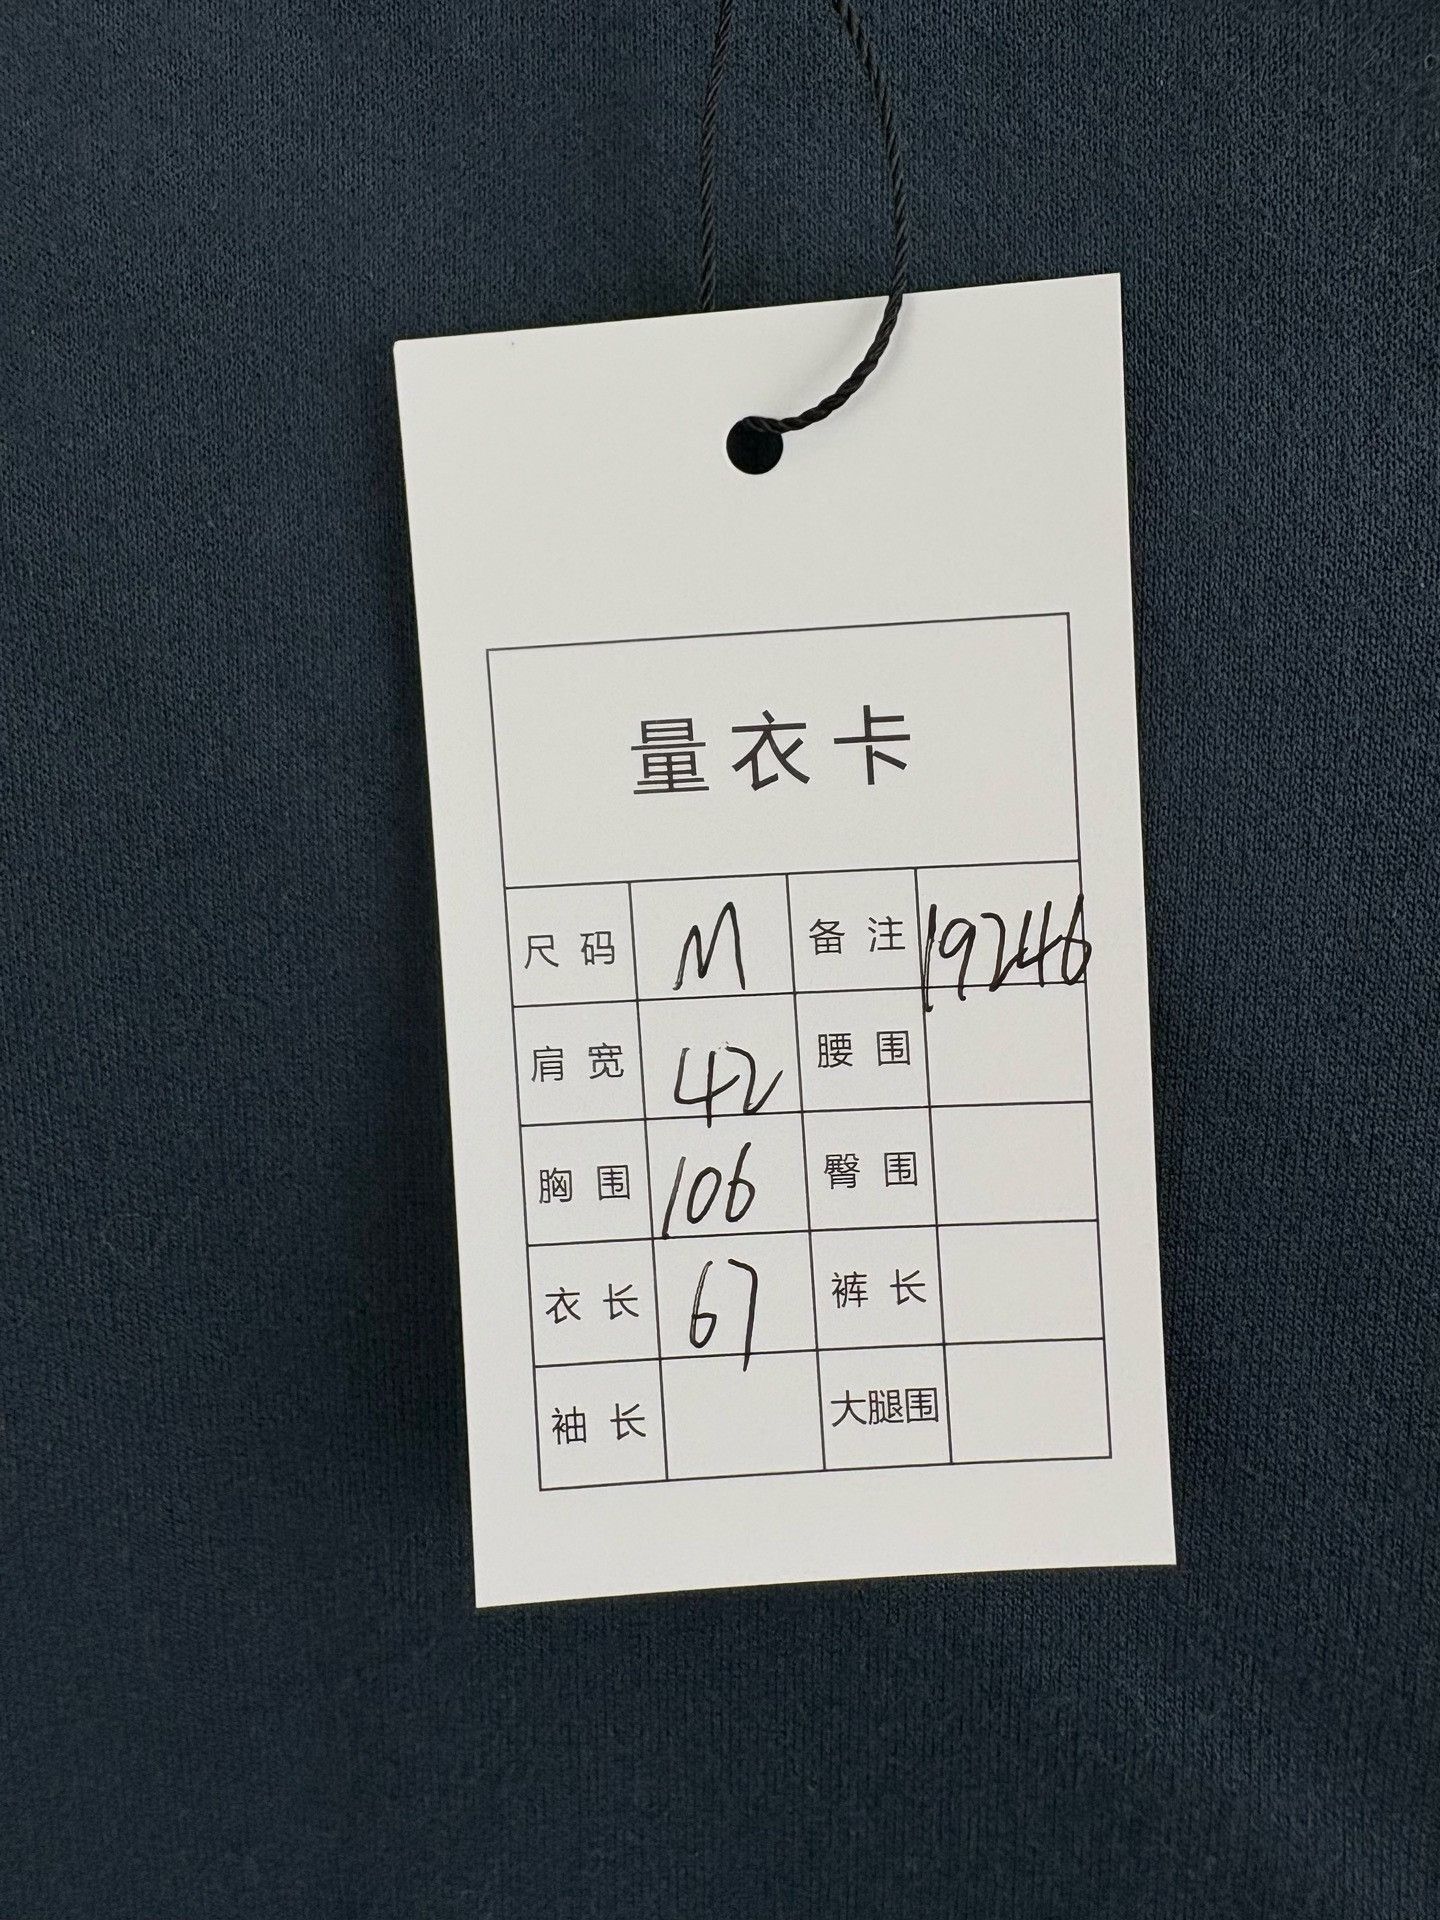 量衣卡
尺码 M 备注 19246
肩宽 42 腰围
胸围 106 臀围
衣长 67 裤长
袖长 大腿围